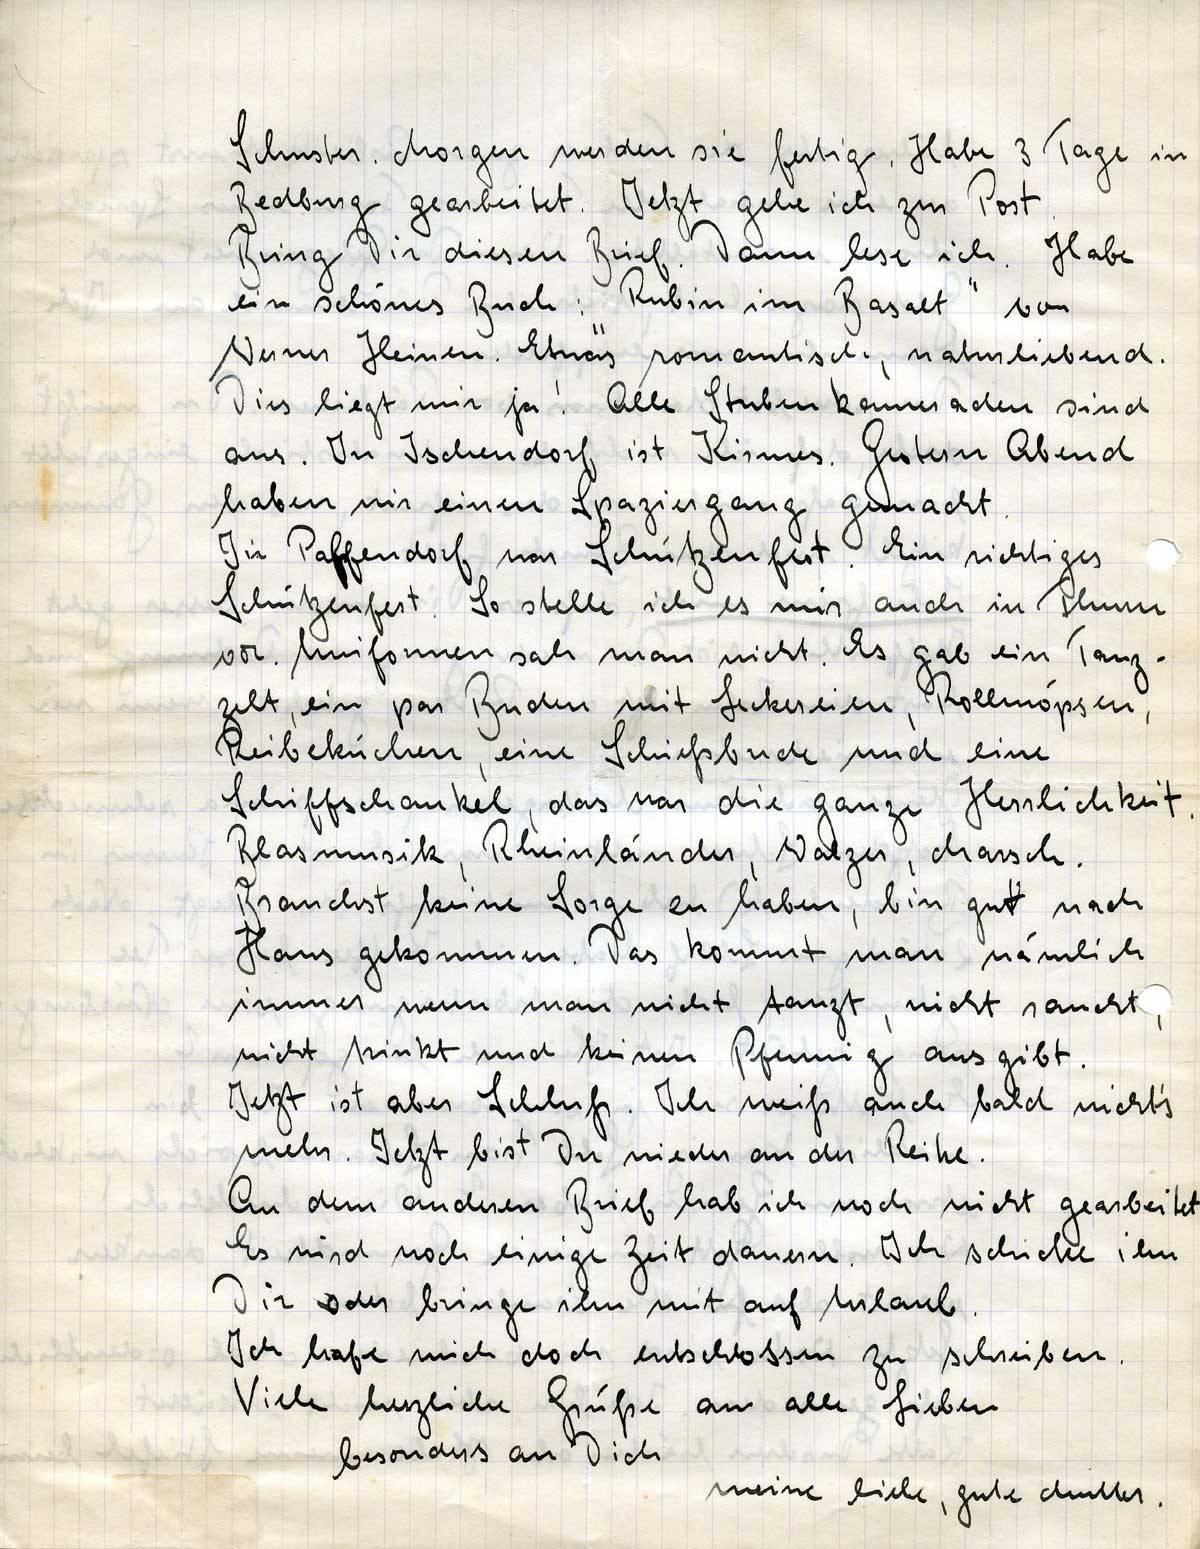 Schuster. Morgen werden sie fertig. Habe 3 Tage in
Bedburg gearbeitet. Jetzt gehe ich zur Post.
Bring Dir diesen Brief. Dann lese ich. Habe
ein schönes Buch: "Rubin im Basalt" von
Werner Heinen. Etwas romantisch, naturliebend.
Dies liegt mir ja! Alle Stubenkameraden sind
aus. In Ischendorf ist Kirmes. Gestern Abend
haben wir einen Spaziergang gemacht.
In Paffendorf war Schützenfest. Ein richtiges
Schützenfest. So stelle ich es mir auch in Thum
vor. Uniformen sah man nicht. Es gab ein Tanz-
zelt, ein par Buden mit Leckereien, Rollmöpsen,
Reibekuchen, eine Schießbude und eine
Schiffschaukel, das war die ganze Herrlichkeit.
Blasmusik, Rheinländer, Walzer, Marsch.
Brauchst keine Sorge zu haben, bin gut nach
Haus gekommen. Das kommt man nämlich
immer wenn man nicht tanzt, nicht raucht,
nicht trinkt und keinen Pfennig ausgibt.
Jetzt ist aber Schluß. Ich weiß auch bald nichts
mehr. Jetzt bist Du wieder an der Reihe.
An dem anderen Brief hab ich noch nicht gearbeitet
Es wird noch einige Zeit dauern. Ich schicke ihn
Dir oder bringe ihn mit auf Urlaub.
Ich habe mich doch entschlossen zu schreiben.
Viele herzliche Grüße an alle Lieben
besonders an Dich
meine liebe, gute Mutter.